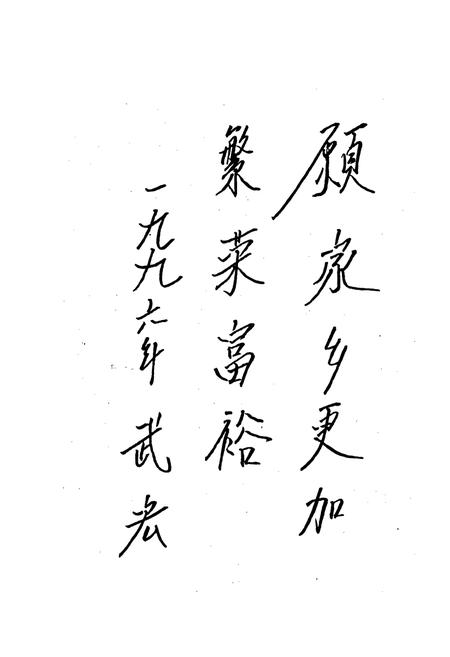 願家乡更加
繁荣富裕
一九九六年 武宏